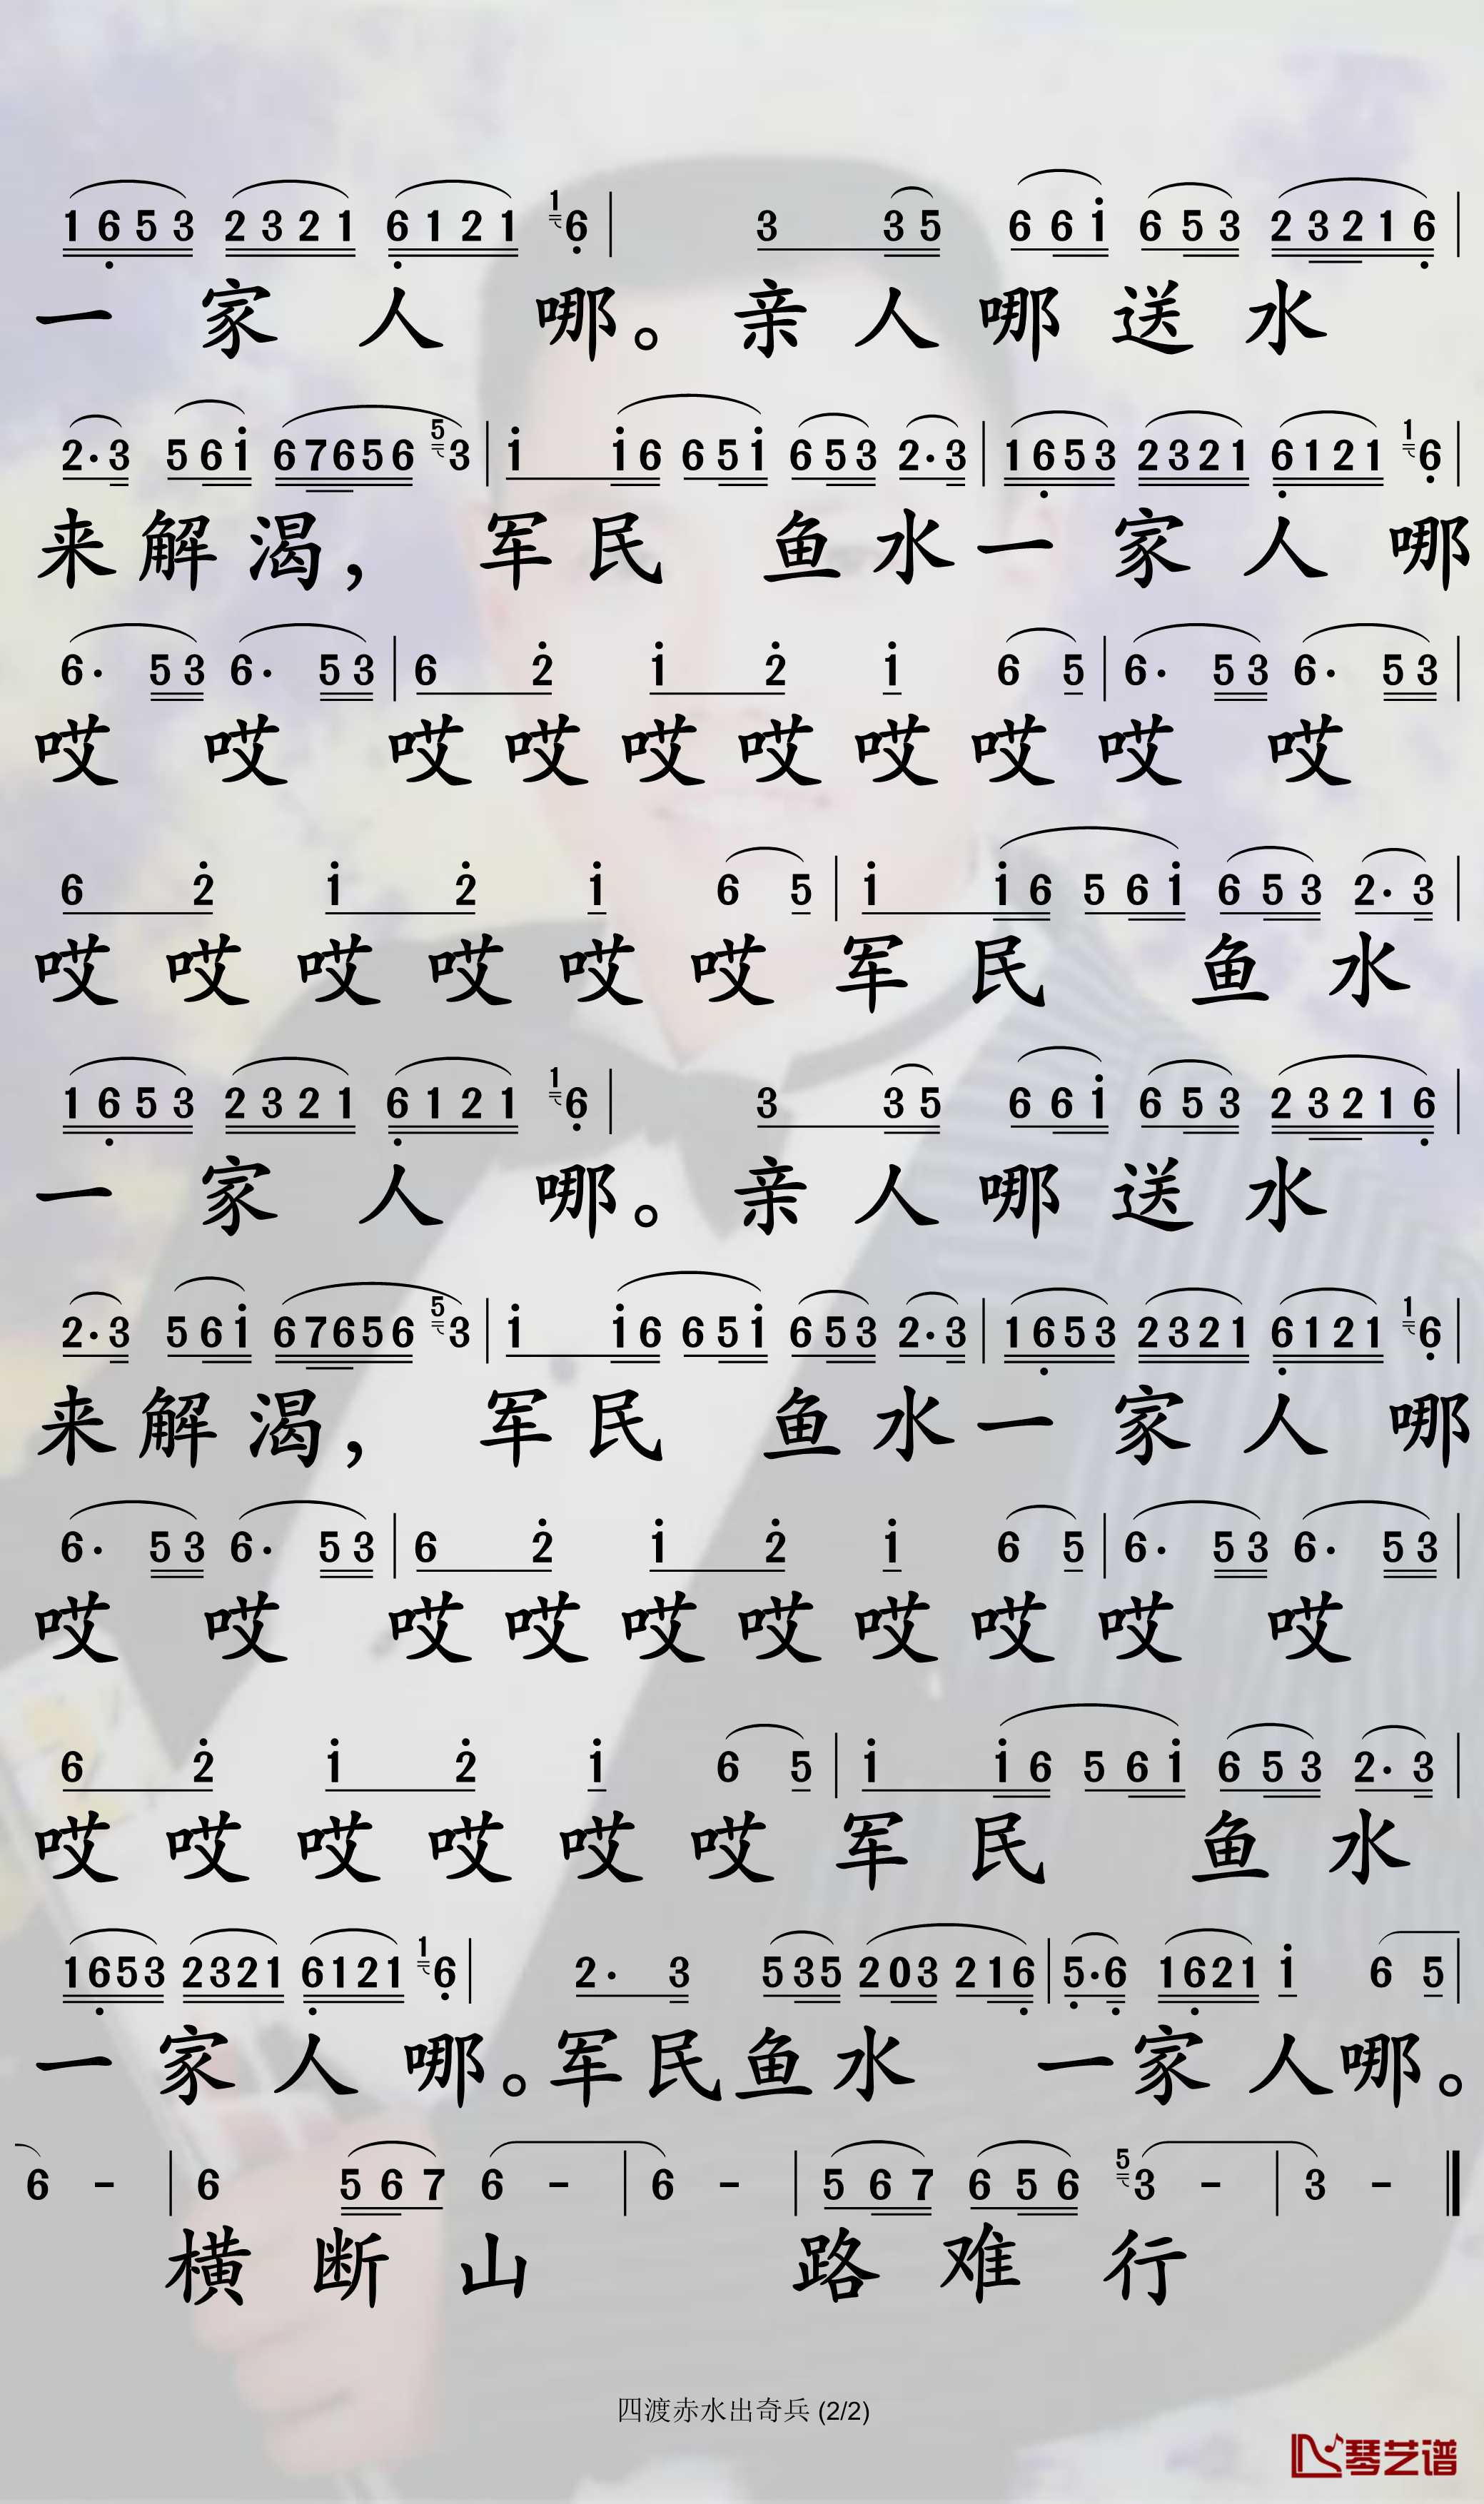 1 6̣ 5 3 2 3 2 1 6̣ 1 2 1 1 6̣ | 3 3 5 6 6 1̇ 6 5 3 2 3 2 1 6̣ |
一 家 人 哪。亲 人 哪 送 水
2· 3 5 6 1̇ 6 7 6 5 6 5 3 | 1̇ 1̇ 6 6 5 1̇ 6 5 3 2· 3 | 1 6̣ 5 3 2 3 2 1 6̣ 1 2 1 1 6̣ |
来 解 渴， 军 民 鱼 水 一 家 人 哪
6· 5 3 6· 5 3 | 6 2̇ 1̇ 2̇ 1̇ 6 5 | 6· 5 3 6· 5 3 |
哎 哎 哎 哎 哎 哎 哎 哎 哎 哎
6 2̇ 1̇ 2̇ 1̇ 6 5 | 1̇ 1̇ 6 5 6 1̇ 6 5 3 2· 3 |
哎 哎 哎 哎 哎 哎 军 民 鱼 水
1 6̣ 5 3 2 3 2 1 6̣ 1 2 1 1 6̣ | 3 3 5 6 6 1̇ 6 5 3 2 3 2 1 6̣ |
一 家 人 哪。亲 人 哪 送 水
2· 3 5 6 1̇ 6 7 6 5 6 5 3 | 1̇ 1̇ 6 6 5 1̇ 6 5 3 2· 3 | 1 6̣ 5 3 2 3 2 1 6̣ 1 2 1 1 6̣ |
来 解 渴， 军 民 鱼 水 一 家 人 哪
6· 5 3 6· 5 3 | 6 2̇ 1̇ 2̇ 1̇ 6 5 | 6· 5 3 6· 5 3 |
哎 哎 哎 哎 哎 哎 哎 哎 哎 哎
6 2̇ 1̇ 2̇ 1̇ 6 5 | 1̇ 1̇ 6 5 6 1̇ 6 5 3 2· 3 |
哎 哎 哎 哎 哎 哎 军 民 鱼 水
1 6̣ 5 3 2 3 2 1 6̣ 1 2 1 1 6̣ | 2· 3 5 3 5 2 0 3 2 1 6̣ | 5̣· 6̣ 1 6̣ 2 1 1̇ 6 5 |
一 家 人 哪。军 民 鱼 水 一 家 人 哪。
6 - | 6 5 6 7 6 - | 6 - | 5 6 7 6 5 6 5 3 - | 3 - ‖
横 断 山 路 难 行
四渡赤水出奇兵 (2/2)
琴艺谱